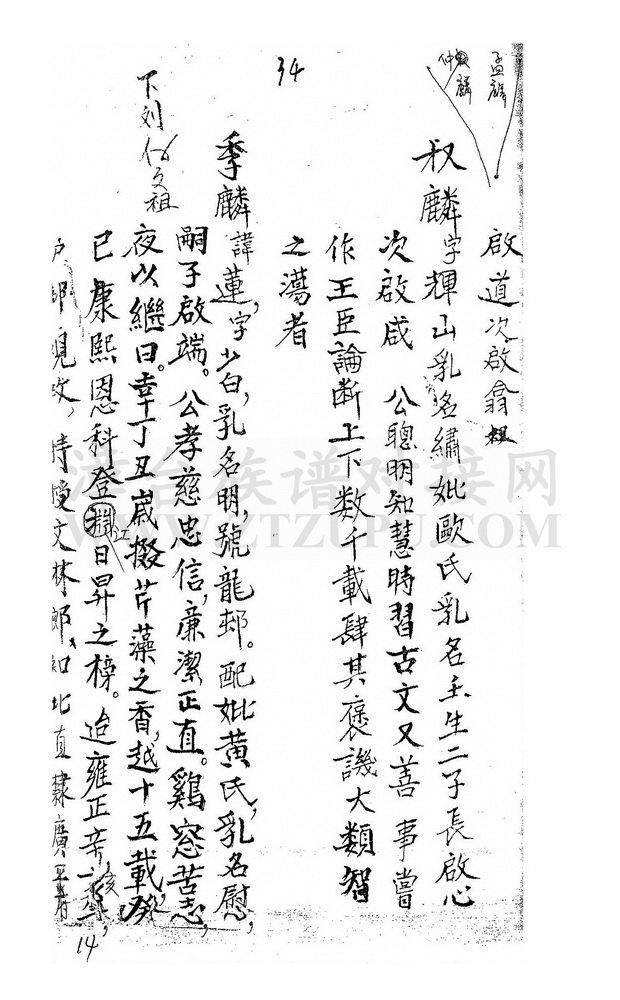 34
孟麟
仲麟
啟道次啟翕祖
叔麟字輝山乳名繡妣歐氏乳名壬生二子長啟心
次啟咸 公聰明知慧時習古文又善事嘗
作王臣論断上下数千載肆其褒譏大類智
之蕩者
季麟諱蓮,字少白,乳名明,號龍邨。配妣黄氏,乳名慰,
嗣子啟端。公孝慈忠信,廉潔正直。鷄窓苦志,
夜以繼日。幸丁丑嵗掇芹藻之香,越十五載,癸
已康熙恩科登江日昇之榜。迨雍正辛亥,
下刘 文祖
部現政,特授文林郎,知北直隸廣平府
14
漳台族谱对接网
WWW.ZTZUPU.COM